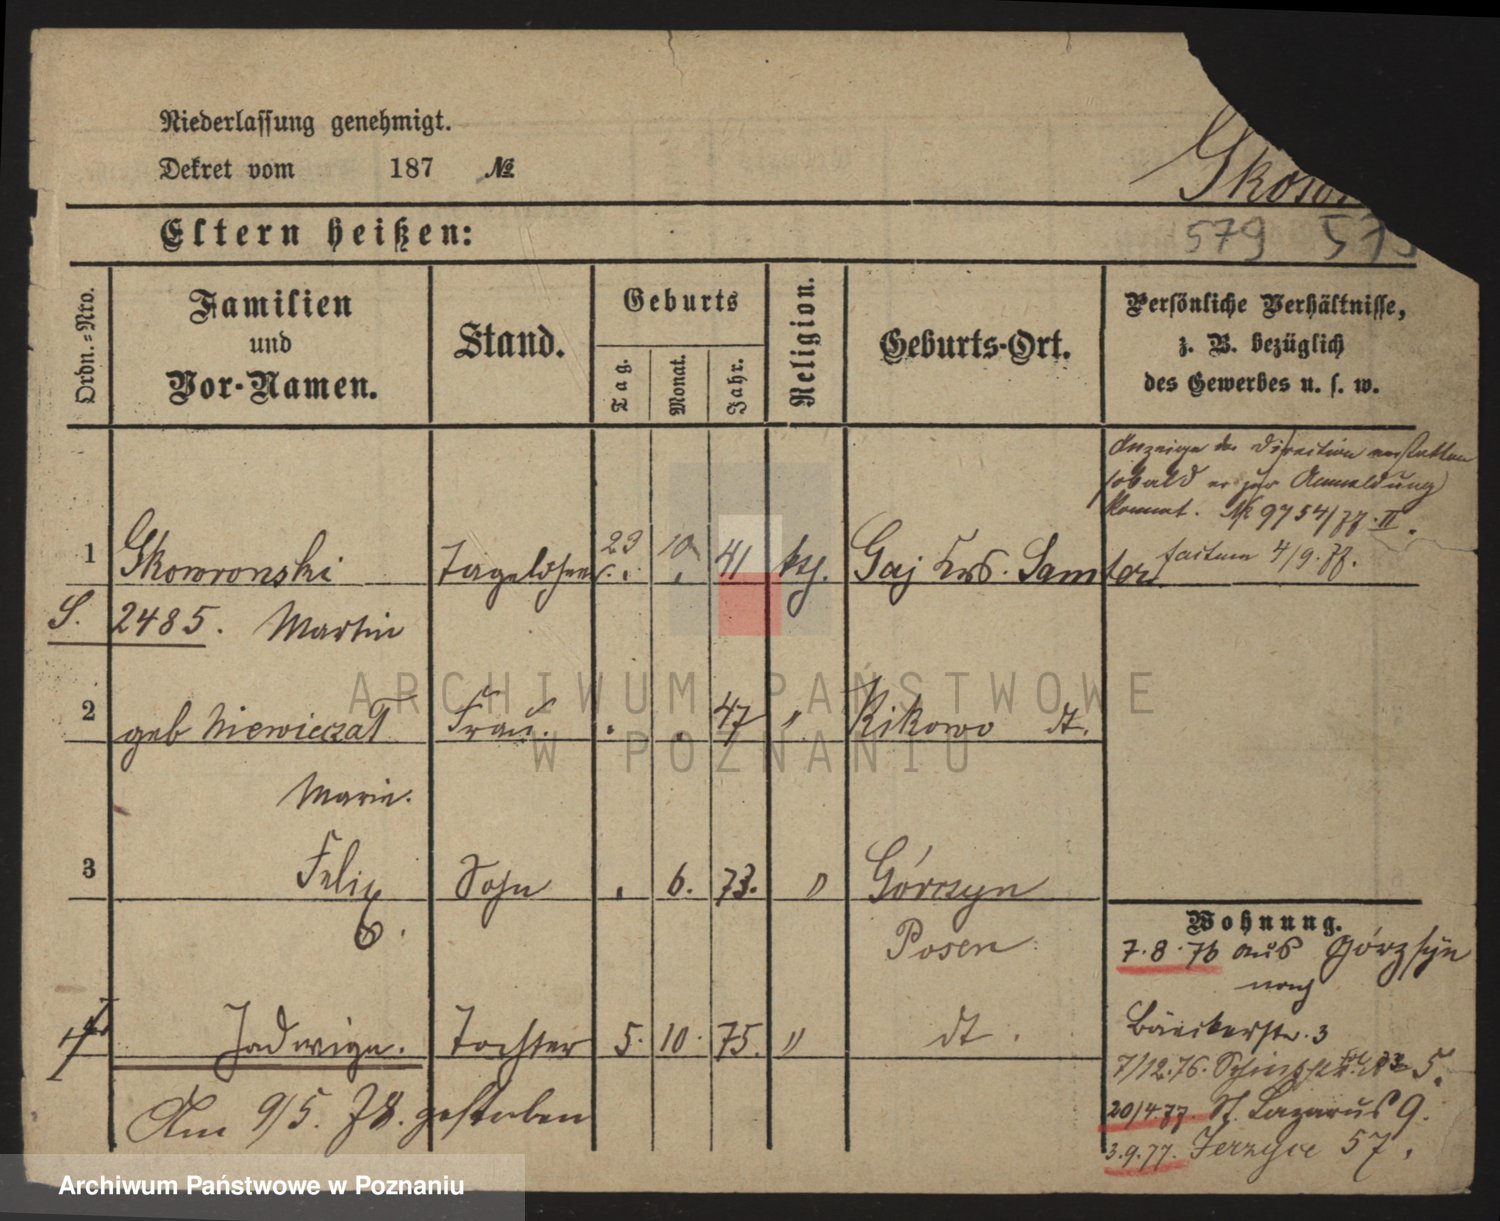 Niederlassung genehmigt.
Dekret vom 187 №
Skowr
579 573
Eltern heißen:
Ordn.=Nro.
Familien
und
Vor-Namen.
Stand.
Geburts
Tag.
Monat.
Jahr.
Religion.
Geburts-Ort.
Persönliche Verhältnisse,
z. B. bezüglich
des Gewerbes u. s. w.
Anzeige der Direction erstatten
sobald er zur Anmeldung
kommt. № 9754/77. II.
factum 4/9.77.
1 Skowronski Tagelöhner 23 10 41 kth. Gaj Krs. Samter
S. 2485. Martin
2 geb Niewiezat Frau. . . 47 " Kikowo dt.
Marie.
3 Felix Sohn . 6. 73. " Górczyn
6. Posen
Jadwiga. Tochter 5. 10. 75. " dt.
Am 9/5. 78. gestorben
Wohnung.
7.8.76 aus Górzsyn
nach
Bäckerstr. 3
7/12.76. 5.
20/4.77. St. Lazarus 9.
3.9.77. Jerzyce 57.
ARCHIWUM PAŃSTWOWE
W POZNANIU
Archiwum Państwowe w Poznaniu